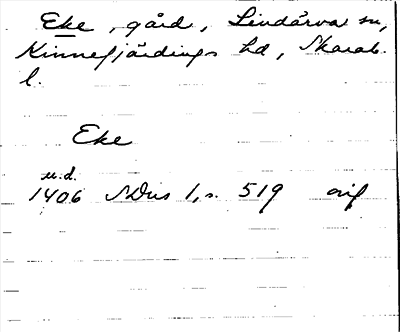 Eke, gård, Lindärva sn,
Kinnefjärdings hd, Skarab.
l.
Eke
u.d.
1406 SDns 1, s. 519 orig